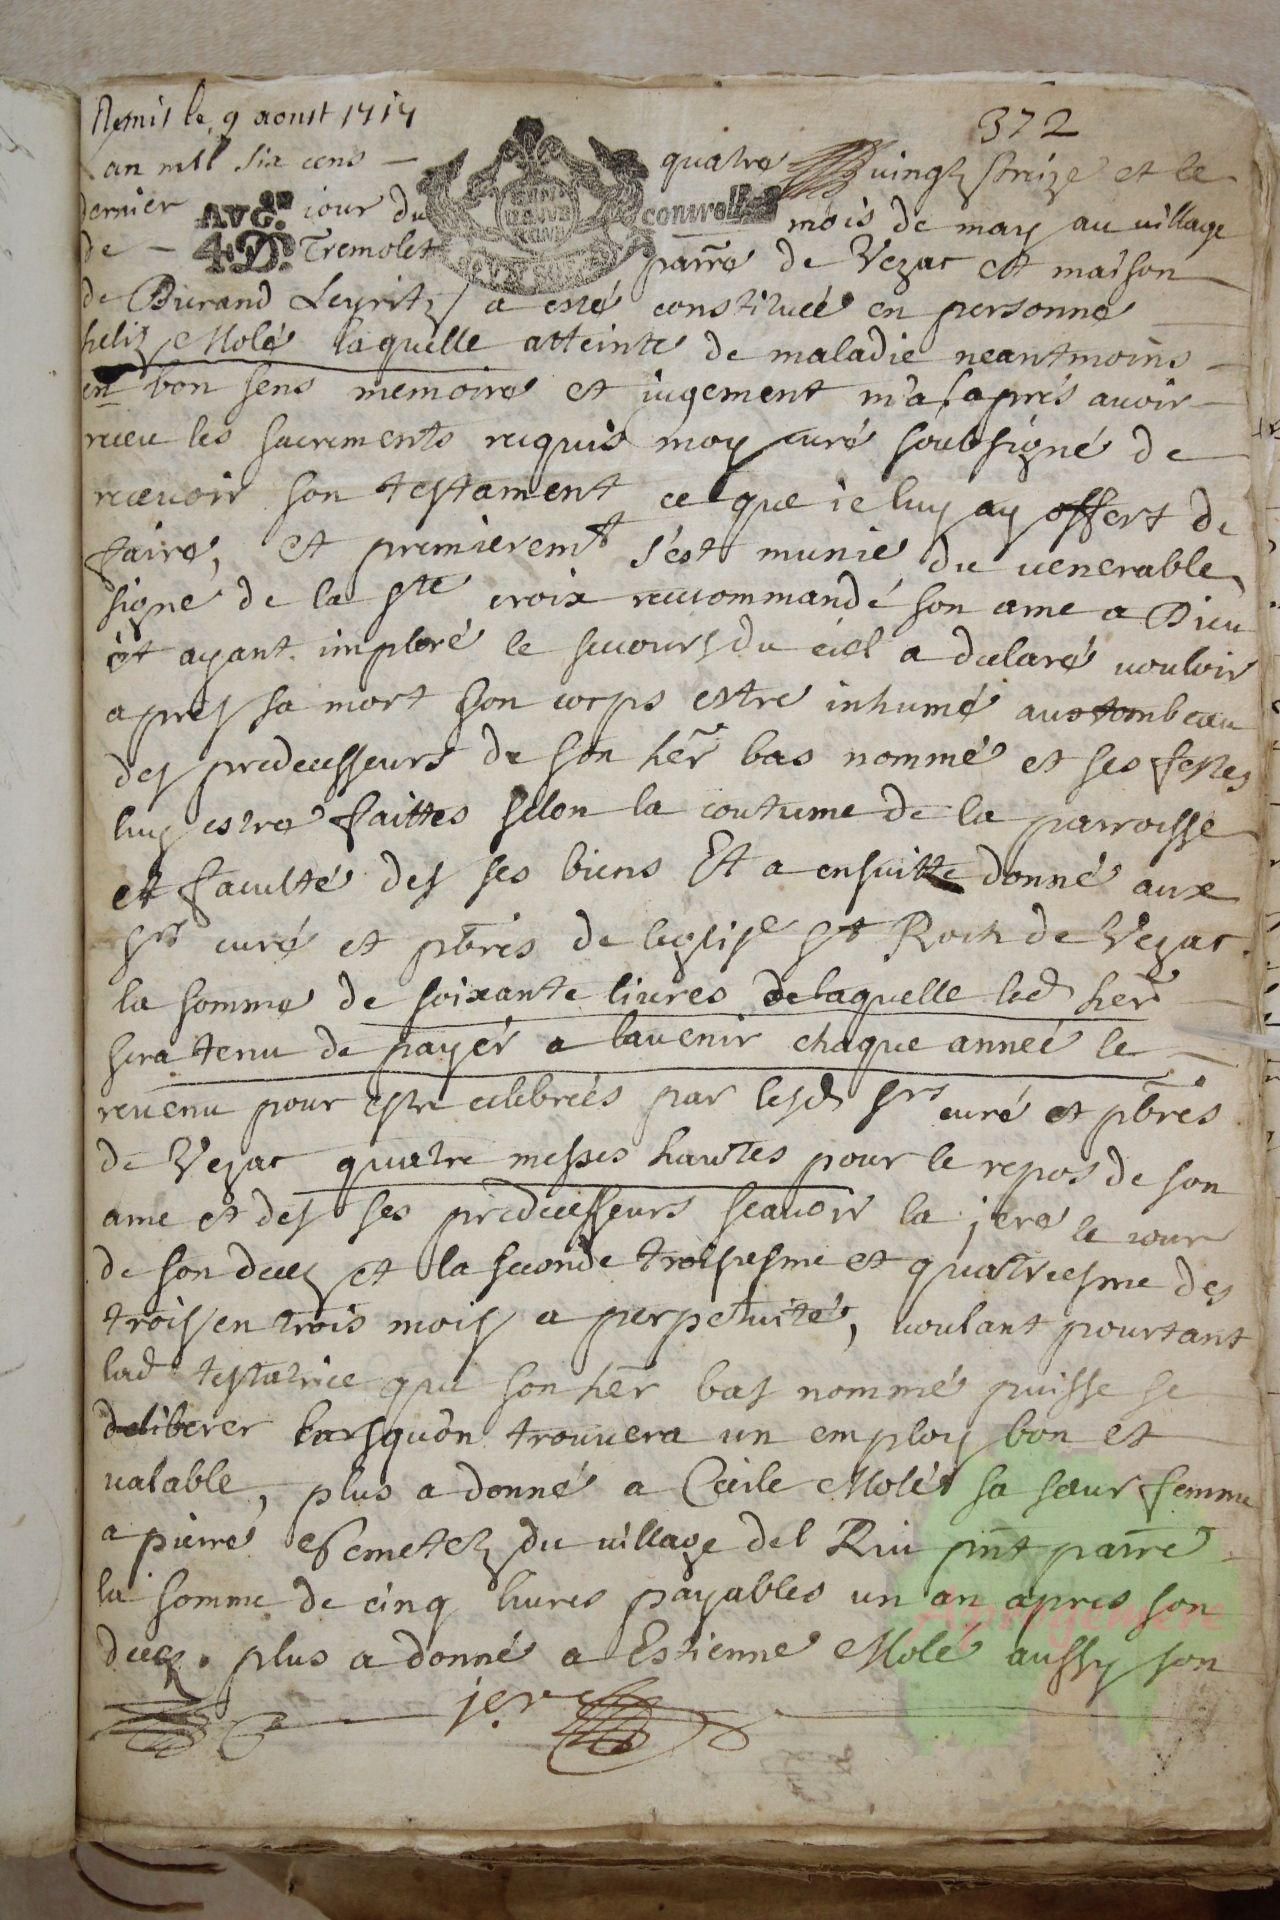 Remis le 9 aoust 1717
372
Lan mil six cens quatre vingt streize et le
dernier jour du mois de may au village
AVG.
4 D.
controllé
de Tremolet parro de Vezac et maison
de Durand Leyritz a esté constituée en personne
helix Molé laquelle atteinte de maladie neantmoins
en bon sens memoire et jugement m'a apres avoir
receu les sacrements requis moy curé soubsigné de
recevoir son testament ce que ie luy ay offert de
faire, et premieremt s'est munie du venerable
signe de la ste croix recommandé son ame a Dieu
et ayant imploré le secours du ciel a declaré vouloir
apres sa mort son corps estre inhumé au tombeau
des predecesseurs de son her bas nommé et ses festes
luy estre faittes selon la coutume de la parroisse
et faculté des ses biens Et a ensuitte donné aux
srs curé et pbres de leglise st Roch de Vezac
la somme de soixante livres de laquelle led her
sera tenu de payér a lavenir chaque année le
revenu pour estre celebrées par lesd srs curé et pbres
de Vezac quatre messes hautes pour le repos de son
ame et des ses predecesseurs scavoir la jere le iour
de son decez et la seconde troisiesme et quatriesme des
trois en trois mois a perpetuité, voulant pourtant
lad testatrice que son her bas nommé puisse se
deliberer lorsquon trouvera un employ bon et
valable, plus a donné a Cecile Molé sa soeur femme
a pierre du village del Riu pnt parre
la somme de cinq livres payables un an apres son
decez. plus a donné a Estienne Molé aussy son
jere
Auprogemere